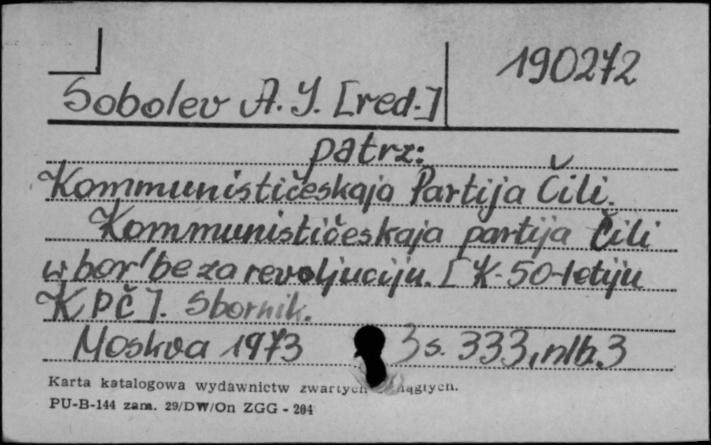 190272
Sobolev A. J. [red.]
patrz:
Kommunističeskaja Partija Čili.
Kommunističeskaja partija Čili
w bor'be za revoljuciju. [K-50-letiju
KPČ]. Sbornik.
Moskva 1973 s. 333, nlb. 3
Karta katalogowa wydawnictw zwartych
PU-B-144 zam. 29/DW/On ZGG - 204